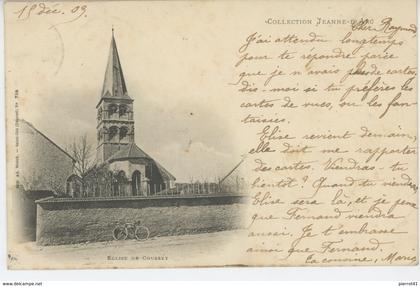 18 déc. 03
COLLECTION JEANNE-D'ARC
Cher Raymond
J'ai attendu longtemps
pour te répondre parce
que je n'avais plus de cartes,
dis-moi si tu préfères les
cartes de vues, ou les fan
taisies.
Elise revient demain,
elle doit me rapporter
des cartes. Viendras-tu
bientôt? Quand tu viendras
Elise sera là, et je pense
que Fernand viendra
aussi. Je t'embrasse
ainsi que Fernand.
Ta cousine, Marie
EGLISE DE COUSSEY